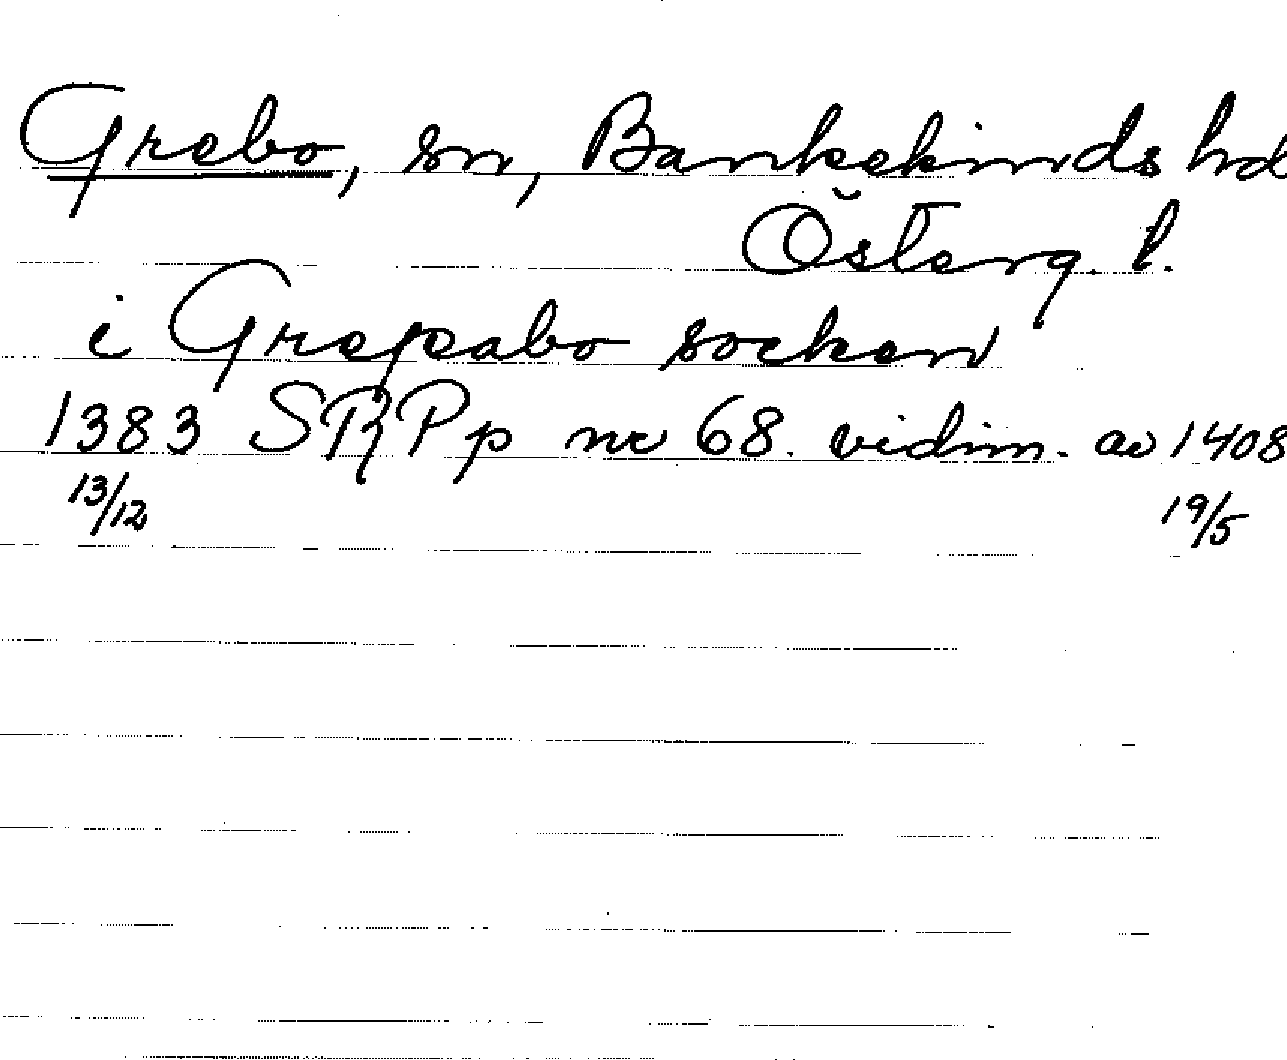 Grebo, sn, Bankekinds hd
Österg. l.
i Grepabo socken
1383 SRPp nr 68. vidim. av 1408
13/12 19/5